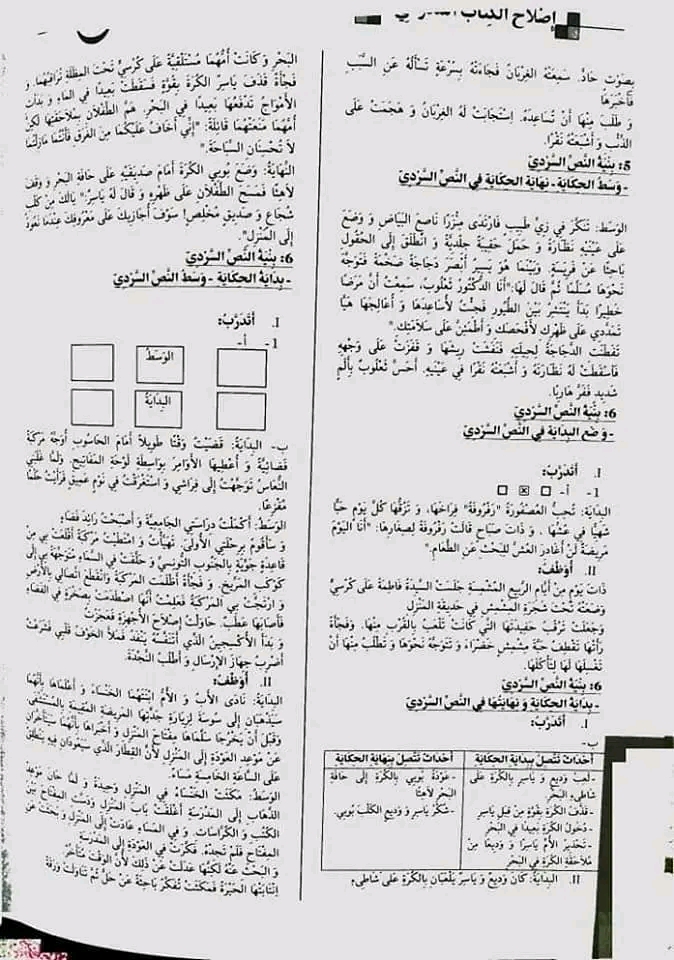 إصلاح الكتاب
بِصَوْت حَادٍّ. سَمِعَتْهُ الغِرْبَانُ فَجَاءَتْهُ بِسُرْعَةٍ تَسْأَلُهُ عَنِ السَّبَبِ
فَأَخْبَرَهَا
وَ طَلَبَ مِنْهَا أَنْ تُسَاعِدَهُ. اِسْتَجَابَتْ لَهُ الغِرْبَانُ وَ هَجَمَتْ عَلَى
الذِّئْبِ وَ أَشْبَعَتْهُ نَقْرًا.
5: بِنْيَةُ النَّصِّ السَّرْدِيِّ
- وَسَطُ الحِكَايَةِ- نِهَايَةُ الحِكَايَةِ فِي النَّصِّ السَّرْدِيِّ
الوَسَطُ: تَنَكَّرَ فِي زِيِّ طَبِيبٍ فَارْتَدَى مِئْزَرًا نَاصِعَ البَيَاضِ وَ وَضَعَ
عَلَى عَيْنَيْهِ نَظَّارَةً وَ حَمَلَ حَقِيبَةً جِلْدِيَّةً وَ انْطَلَقَ إِلَى الحُقُولِ
بَاحِثًا عَنْ فَرِيسَةٍ. وَبَيْنَمَا هُوَ يَسِيرُ أَبْصَرَ دَجَاجَةً ضَخْمَةً فَتَوَجَّهَ
نَحْوَهَا مُسَلِّمًا ثُمَّ قَالَ لَهَا:"أَنَا الدُّكْتُورُ ثَعْلُوبُ، سَمِعْتُ أَنَّ مَرَضًا
خَطِيرًا بَدَأَ يَنْتَشِرُ بَيْنَ الطُّيُورِ فَجِئْتُ لِأُسَاعِدَهَا وَ أُعَالِجَهَا هَيَّا
تَمَدَّدِي عَلَى ظَهْرِكِ لِأَفْحَصَكِ وَ أَطْمَئِنَّ عَلَى سَلَامَتِكِ."
تَفَطَّنَتِ الدَّجَاجَةُ لِحِيلَتِهِ فَنَفَشَتْ رِيشَهَا وَ قَفَزَتْ عَلَى وَجْهِهِ
فَأَسْقَطَتْ لَهُ نَظَّارَتَهُ وَ أَشْبَعَتْهُ نَقْرًا فِي عَيْنَيْهِ. أَحَسَّ ثَعْلُوبُ بِأَلَمٍ
شَدِيدٍ فَفَرَّ هَارِبًا.
6: بِنْيَةُ النَّصِّ السَّرْدِيِّ
- وَضْعُ البِدَايَةِ فِي النَّصِّ السَّرْدِيِّ
I. أَتَدَرَّبُ:
1- أ-
البِدَايَةُ: تُحِبُّ العُصْفُورَةُ "زَقْزُوقَةُ" فِرَاخَهَا، وَ تَزُقُّهَا كُلَّ يَوْمٍ حَبًّا
شَهِيًّا فِي عُشِّهَا. وَ ذَاتَ صَبَاحٍ قَالَتْ زَقْزُوقَةُ لِصِغَارِهَا: "أَنَا اليَوْمَ
مَرِيضَةٌ لَنْ أُغَادِرَ العُشَّ لِلْبَحْثِ عَنِ الطَّعَامِ."
II. أُوَظِّفُ:
ذَاتَ يَوْمٍ مِنْ أَيَّامِ الرَّبِيعِ المُشْمِسَةِ جَلَسَتِ السَّيِّدَةُ فَاطِمَةُ عَلَى كُرْسِيٍّ
وَضَعَتْهُ تَحْتَ شَجَرَةِ المِشْمِشِ فِي حَدِيقَةِ المَنْزِلِ
وَجَعَلَتْ تَرْقُبُ حَفِيدَتَهَا الَّتِي كَانَتْ تَلْعَبُ بِالقُرْبِ مِنْهَا. وَفَجْأَةً
رَأَتْهَا تَقْطِفُ حَبَّةَ مِشْمِشٍ خَضْرَاءَ وَ تَتَوَجَّهُ نَحْوَهَا وَ تَطْلُبُ مِنْهَا أَنْ
تَغْسِلَهَا لَهَا لِتَأْكُلَهَا.
6: بِنْيَةُ النَّصِّ السَّرْدِيِّ
- بِدَايَةُ الحِكَايَةِ وَ نِهَايَتُهَا فِي النَّصِّ السَّرْدِيِّ
I. أَتَدَرَّبُ:
ب-
أَحْدَاثٌ تَتَّصِلُ بِبِدَايَةِ الحِكَايَةِ
- لَعِبُ وَدِيعٍ وَ يَاسِرٍ بِالكُرَةِ عَلَى
شَاطِئِ البَحْرِ.
- قَذْفُ الكُرَةِ بِقُوَّةٍ مِنْ قِبَلِ يَاسِرٍ
- دُخُولُ الكُرَةِ بَعِيدًا فِي البَحْرِ
- تَحْذِيرُ الأُمِّ يَاسِرًا وَ وَدِيعًا مِنْ
مُلَاحَقَةِ الكُرَةِ فِي البَحْرِ
أَحْدَاثٌ تَتَّصِلُ بِنِهَايَةِ الحِكَايَةِ
- عَوْدَةُ بُوبِي بِالكُرَةِ إِلَى حَافَةِ
البَحْرِ لَاهِثًا
- شُكْرُ يَاسِرٍ وَ وَدِيعٍ الكَلْبَ بُوبِي.
II. البِدَايَةُ: كَانَ وَدِيعٌ وَ يَاسِرٌ يَلْعَبَانِ بِالكُرَةِ عَلَى شَاطِئِ
البَحْرِ وَكَانَتْ أُمُّهُمَا مُسْتَلْقِيَةً عَلَى كُرْسِيٍّ تَحْتَ المِظَلَّةِ تُرَاقِبُهُمَا. وَ
فَجْأَةً قَذَفَ يَاسِرٌ الكُرَةَ بِقُوَّةٍ فَسَقَطَتْ بَعِيدًا فِي المَاءِ وَ بَدَأَتِ
الأَمْوَاجُ تَدْفَعُهَا بَعِيدًا فِي البَحْرِ. هَمَّ الطِّفْلَانِ بِمُلَاحَقَتِهَا لَكِنَّ
أُمَّهُمَا مَنَعَتْهُمَا قَائِلَةً: "إِنِّي أَخَافُ عَلَيْكُمَا مِنَ الغَرَقِ فَأَنْتُمَا مَازِلْتُمَا
لَا تُحْسِنَانِ السِّبَاحَةَ."
النِّهَايَةُ: وَضَعَ بُوبِي الكُرَةَ أَمَامَ صَدِيقَيْهِ عَلَى حَافَةِ البَحْرِ وَ وَقَفَ
لَاهِثًا فَمَسَحَ الطِّفْلَانِ عَلَى ظَهْرِهِ وَ قَالَ لَهُ يَاسِرٌ:" يَالَكَ مِنْ كَلْبٍ
شُجَاعٍ وَ صَدِيقٍ مُخْلِصٍ! سَوْفَ أُجَازِيكَ عَلَى مَعْرُوفِكَ عِنْدَمَا نَعُودُ
إِلَى المَنْزِلِ".
6: بِنْيَةُ النَّصِّ السَّرْدِيِّ
- بِدَايَةُ الحِكَايَةِ - وَسَطُ النَّصِّ السَّرْدِيِّ
I. أَتَدَرَّبُ:
1- أ-
الوَسَطُ
البِدَايَةُ
ب- البِدَايَةُ: قَضَيْتُ وَقْتًا طَوِيلًا أَمَامَ الحَاسُوبِ أُوَجِّهُ مَرْكَبَةً
فَضَائِيَّةً وَ أُعْطِيهَا الأَوَامِرَ بِوَاسِطَةِ لَوْحَةِ المَفَاتِيحِ. وَلَمَّا غَلَبَنِي
النُّعَاسُ تَوَجَّهْتُ إِلَى فِرَاشِي وَ اسْتَغْرَقْتُ فِي نَوْمٍ عَمِيقٍ فَرَأَيْتُ حُلْمًا
مُفْزِعًا.
الوَسَطُ: أَكْمَلْتُ دِرَاسَتِي الجَامِعِيَّةَ وَ أَصْبَحْتُ رَائِدَ فَضَاءٍ
وَ سَأَقُومُ بِرِحْلَتِي الأُولَى. تَهَيَّأْتُ وَ امْتَطَيْتُ مَرْكَبَةً أَقْلَعَتْ بِي مِنْ
قَاعِدَةٍ جَوِّيَّةٍ بِالجَنُوبِ التُّونِسِيِّ وَ حَلَّقَتْ فِي السَّمَاءِ مُتَوَجِّهَةً بِي إِلَى
كَوْكَبِ المَرِّيخِ. وَ فَجْأَةً أَظْلَمَتِ المَرْكَبَةُ وَانْقَطَعَ اتِّصَالِي بِالأَرْضِ
وَ ارْتَجَّتْ بِي المَرْكَبَةُ فَعَلِمْتُ أَنَّهَا اصْطَدَمَتْ بِصَخْرَةٍ فِي الفَضَاءِ
فَأَصَابَهَا عَطَبٌ. حَاوَلْتُ إِصْلَاحَ الأَجْهِزَةِ فَعَجَزْتُ
وَ بَدَأَ الأُكْسِجِينُ الَّذِي أَتَنَفَّسُهُ يَنْفَدُ فَمَلَأَ الخَوْفُ قَلْبِي فَشَرَعْتُ
أَضْرِبُ جِهَازَ الإِرْسَالِ وَ أَطْلُبُ النَّجْدَةَ.
II. أُوَظِّفُ:
البِدَايَةُ: نَادَى الأَبُ وَ الأُمُّ ابْنَتَهُمَا الخَنْسَاءَ وَ أَعْلَمَاهَا بِأَنَّهُمَا
سَيَذْهَبَانِ إِلَى سُوسَةَ لِزِيَارَةِ جَدَّتِهَا المَرِيضَةِ المُقِيمَةِ بِالمُسْتَشْفَى.
وَقَبْلَ أَنْ يَخْرُجَا سَلَّمَاهَا مِفْتَاحَ المَنْزِلِ وَ أَخْبَرَاهَا بِأَنَّهُمَا سَيَتَأَخَّرَانِ
عَنْ مَوْعِدِ العَوْدَةِ إِلَى المَنْزِلِ لِأَنَّ القِطَارَ الَّذِي سَيَعُودَانِ فِيهِ يَنْطَلِقُ
عَلَى السَّاعَةِ الخَامِسَةِ مَسَاءً.
الوَسَطُ: مَكَثَتِ الخَنْسَاءُ فِي المَنْزِلِ وَحِيدَةً وَ لَمَّا حَانَ مَوْعِدُ
الذَّهَابِ إِلَى المَدْرَسَةِ أَغْلَقَتْ بَابَ المَنْزِلِ وَدَسَّتِ المِفْتَاحَ بَيْنَ
الكُتُبِ وَ الكُرَّاسَاتِ. وَ فِي المَسَاءِ عَادَتْ إِلَى المَنْزِلِ وَ بَحَثَتْ عَنِ
المِفْتَاحِ فَلَمْ تَجِدْهُ. فَكَّرَتْ فِي العَوْدَةِ إِلَى المَدْرَسَةِ
وَ البَحْثِ عَنْهُ لَكِنَّهَا عَدَلَتْ عَنْ ذَلِكَ لِأَنَّ الوَقْتَ مُتَأَخِّرٌ.
اِنْتَابَتْهَا الحَيْرَةُ فَمَكَثَتْ تُفَكِّرُ بَاحِثَةً عَنْ حَلٍّ ثُمَّ تَنَاوَلَتْ وَرَقَةً